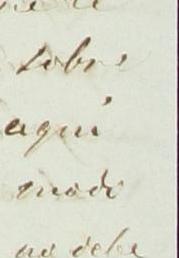 sobre
aqui
modo
no debe